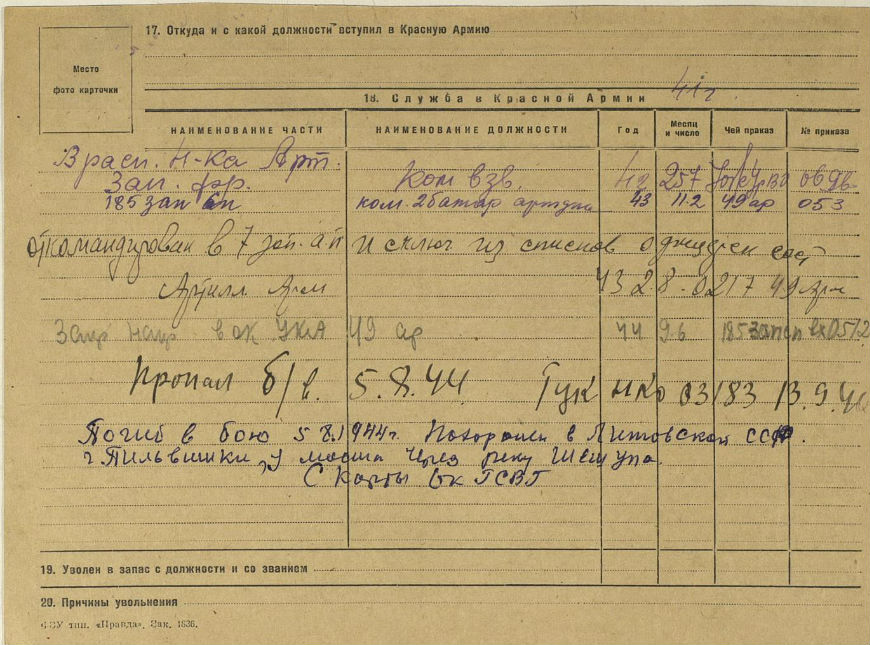 17. Откуда и с какой должности вступил в Красную Армию
Место
фото карточки
18. Служба в Красной Армии 41г
НАИМЕНОВАНИЕ ЧАСТИ НАИМЕНОВАНИЕ ДОЛЖНОСТИ Год Месяц и число Чей приказ № приказа
В расп. Н-ка Арт.
Зап. фр. Ком взв. 42 257
185 зап сп ком. 2 батар 43 11.2 49 ар 053
откомандирован в 7 зап. ап исключ из списков
Артилл 43 2.8 0217 49
в ОК УКА 49 ар 44 9.6 185 зап сп
Пропал б/в. 5.8.44. ГУК НКО 03183 13.9.44
Погиб в бою 5.8.1944г. Похоронен в Литовской ССР.
г. Пильвишки, у моста через реку Шешупа.
С карты ОК ГСВГ
19. Уволен в запас с должности и со званием
20. Причины увольнения
ФЗУ тип. «Правда». Зак. 1836.